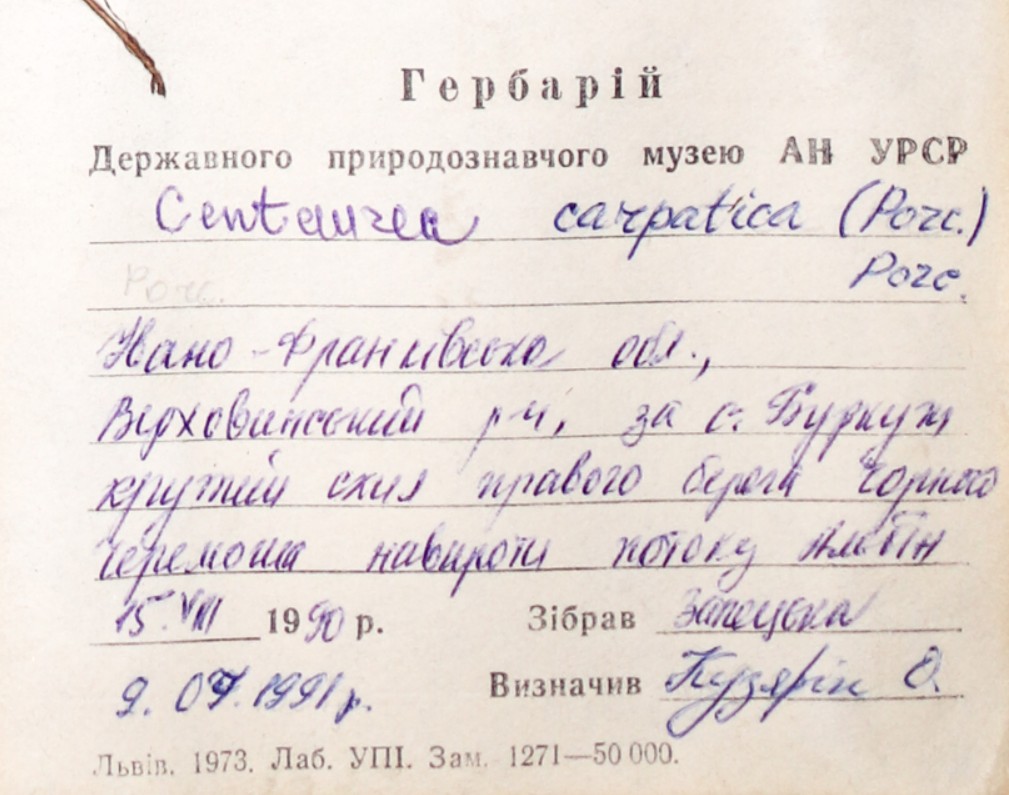 Гербарій
Державного природознавчого музею АН УРСР
Centaurea carpatica (Porc.)
Porc.
Porc.
Івано-Франківська обл.,
Верховинський р-н, за с. Буркут,
крутий схил правого берега Чорного
Черемоша навпроти потоку
15.VIII 1990 р. Зібрав
9.07.1991 р. Визначив Кузярін О.
Львів. 1973. Лаб. УПІ. Зам. 1271—50 000.